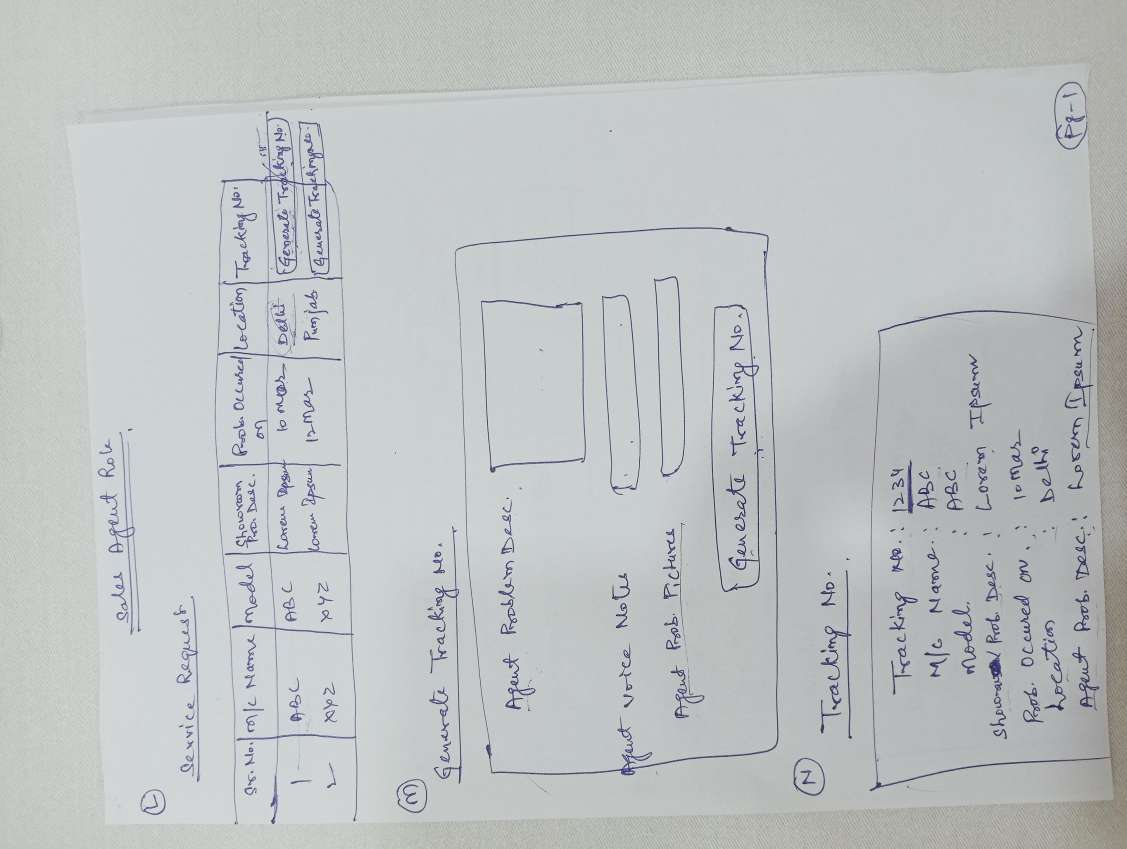 Sales Agent Role
L
Service Request
Sr. No. M/c Name Model Showroom Pro. Desc. Prob. Occured on Location Tracking No.
1 ABC ABC Lorem Ipsum 10 Mar Delhi Generate Tracking No.
2 XYZ XYZ Lorem Ipsum 12 Mar Punjab Generate Tracking No.
M
Generate Tracking No.
Agent Problem Desc.
Agent Voice Notes
Agent Prob. Pictures
Generate Tracking No.
N
Tracking No.
Tracking No. : 1234
M/c Name. : ABC
Model. : ABC
Prob. Desc. : Lorem Ipsum
Prob. Occured on. : 10 Mar
Location : Delhi
Agent Prob. Desc. : Lorem Ipsum
Pg-1